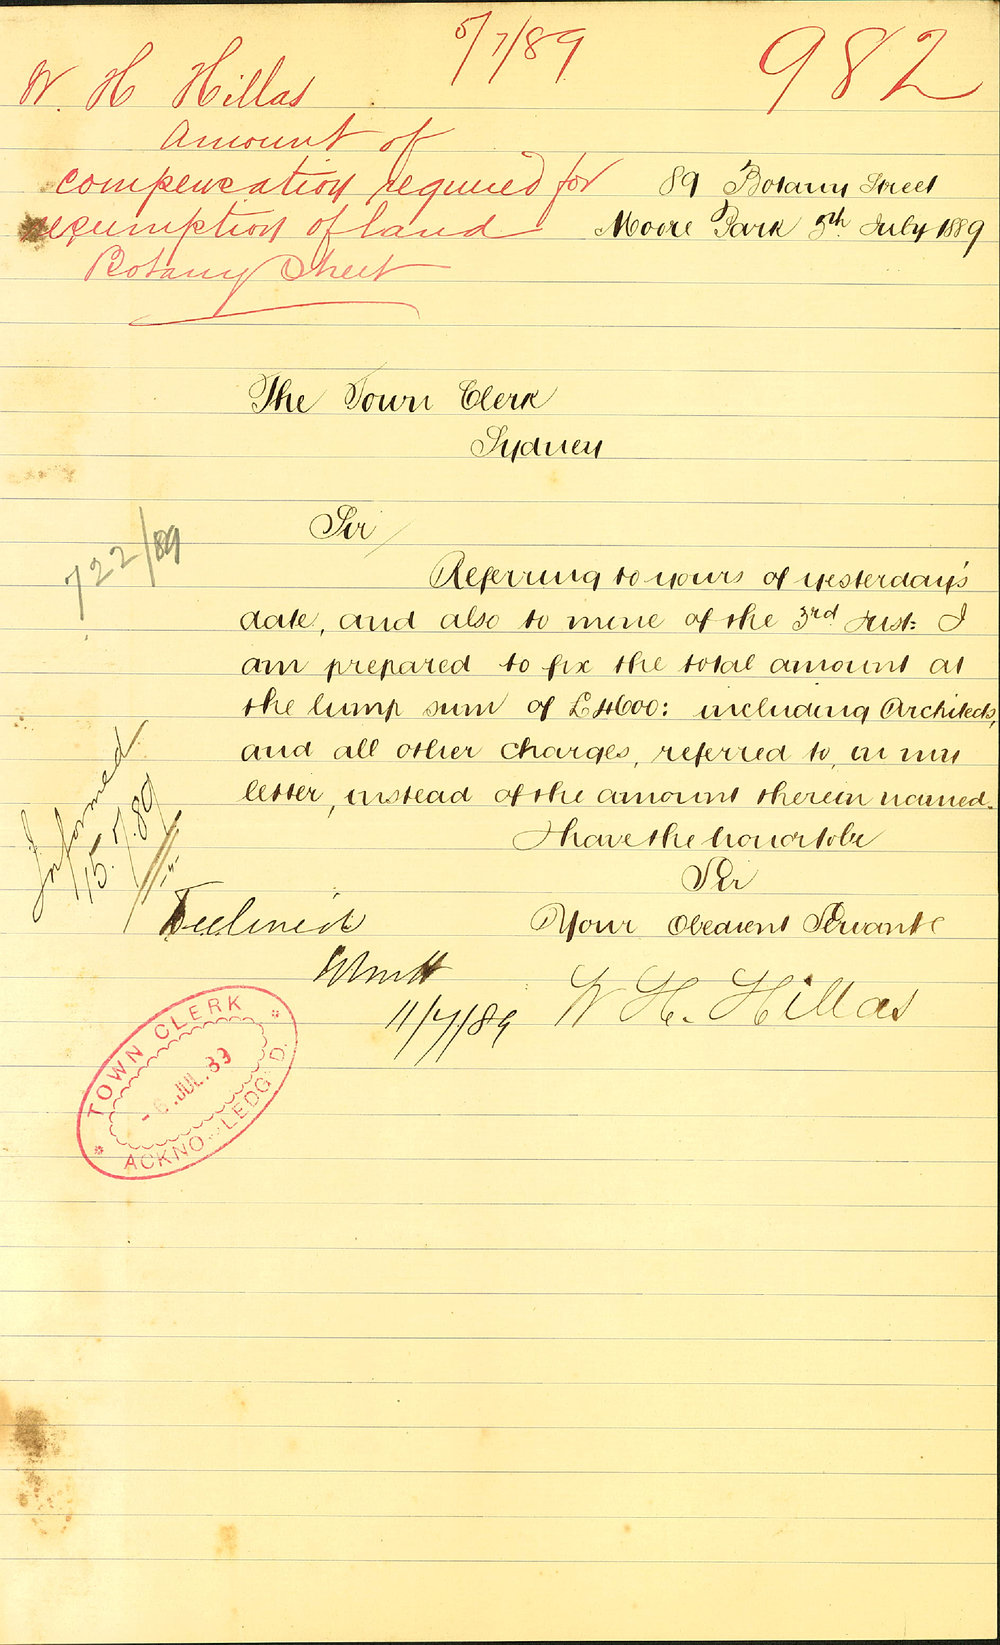 5/7/89
982
W. H Hillas
Amount of
compensation required for
resumption of land
Botany Street
89 Botany Street
Moore Park 5th July 1889
The Town Clerk
Sydney
Sir
Referring to yours of yesterday's
date, and also to mine of the 3rd Inst: I
am prepared to fix the total amount at
the lump sum of £4600: including Architects,
and all other charges, referred to, in my
letter, instead of the amount therein named.
I have the honor to be
Sir
Your Obedient Servant
W H. Hillas
722/89
Informed
15.7.89
11/7/89
TOWN CLERK
6 JUL. 89
ACKNOWLEDG'D.